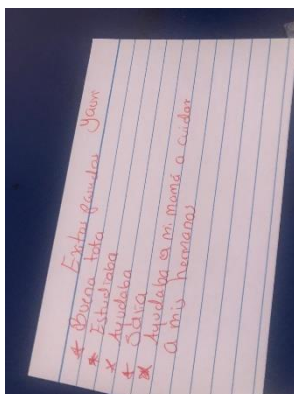 Entas paridas yaure
* Buena tota
* Estudiaba
* Ayudaba
* Salia
* Ayudaba a mi mamá a cuidar
a mis hermanas